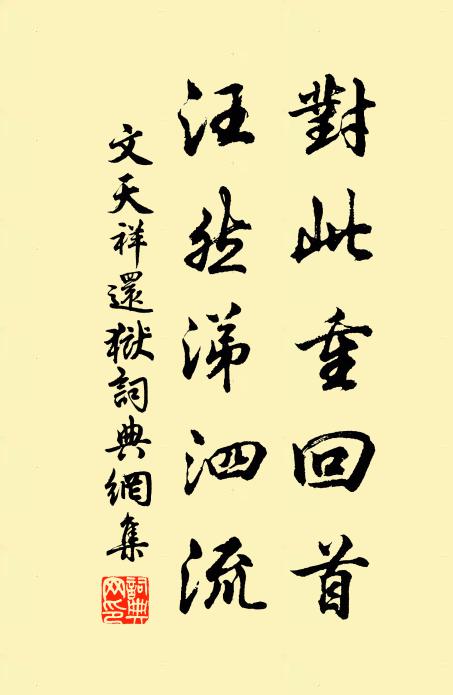 對此重回首
汪然涕泗流
文天祥還獄詞典網集
詞典網印